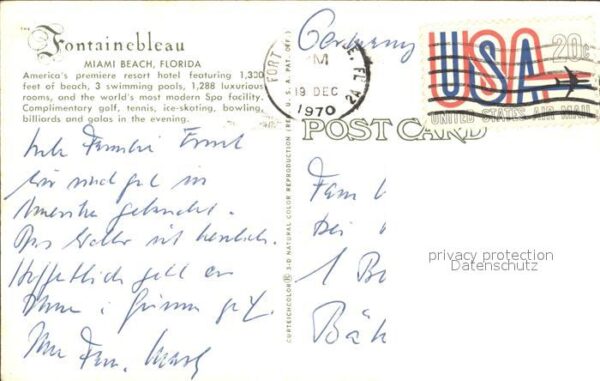 The Fontainebleau
MIAMI BEACH, FLORIDA
America's premiere resort hotel featuring 1,300
feet of beach, 3 swimming pools, 1,288 luxurious
rooms, and the world's most modern Spa facility.
Complimentary golf, tennis, ice-skating, bowling,
billiards and galas in the evening.
Familie
wir sind gut in
Amerika gelandet.
Das Wetter ist herrlich.
Hoffentlich geht es
gut.
Fam.
CURTEICHCOLOR® 3-D NATURAL COLOR REPRODUCTION (REG. U.S.A. PAT. OFF.)
Germany
FORT
M
19 DEC
1970
USA 20c
UNITED STATES AIR MAIL
POST CARD
Fam
bei
1 B
Bäh
privacy protection
Datenschutz